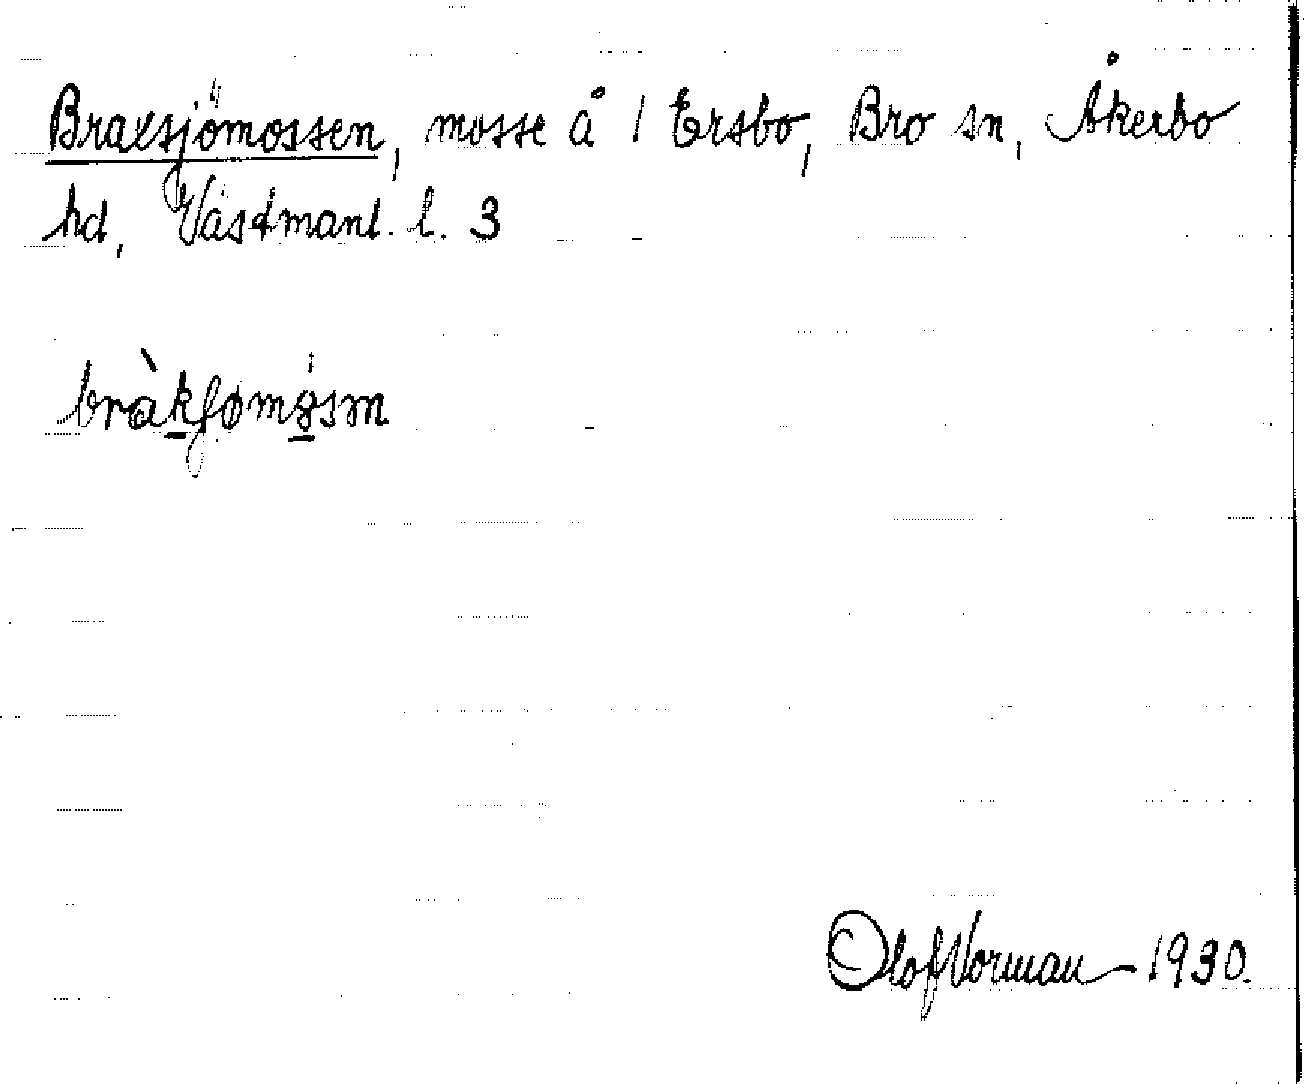 Braxsjömossen, mosse å 1 Ersbo, Bro sn, Åkerbo
hd, Västmanl. l. 3
Olof Norman 1930.